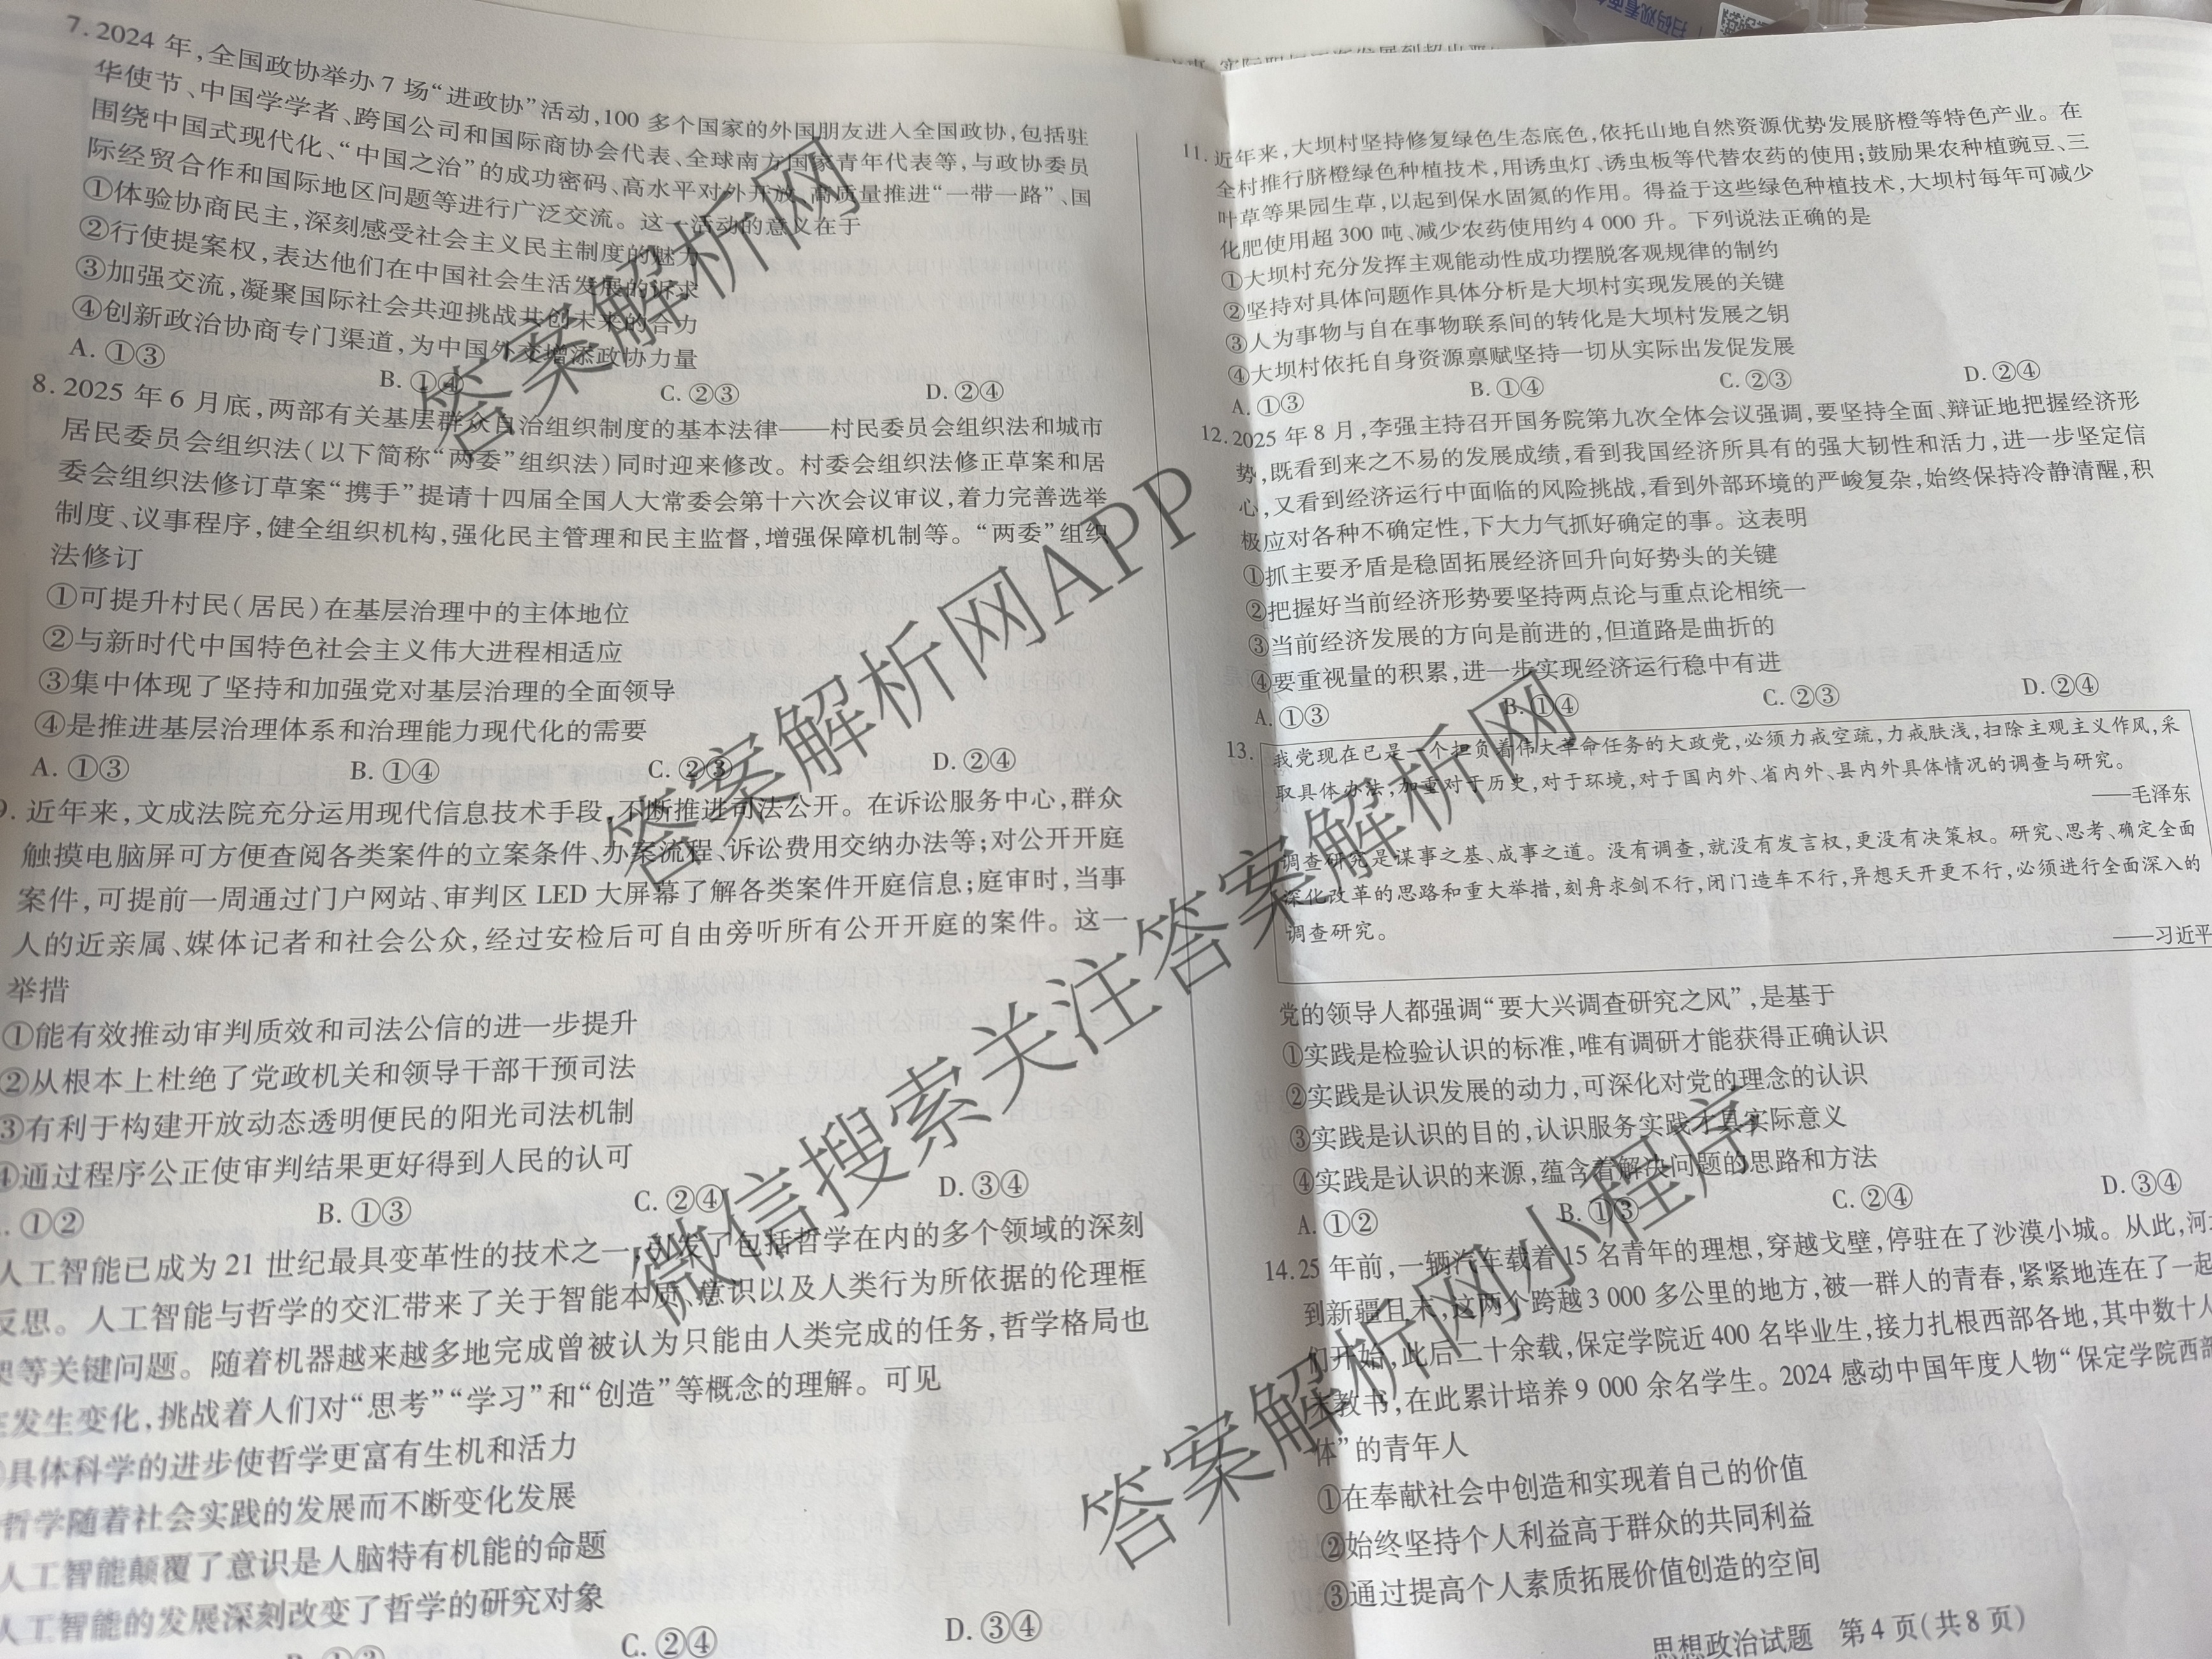 7. 2024 年,全国政协举办 7 场“进政协”活动,100 多个国家的外国朋友进入全国政协,包括驻
华使节、中国学学者、跨国公司和国际商协会代表、全球南方国家青年代表等,与政协委员
围绕中国式现代化、“中国之治”的成功密码、高水平对外开放、高质量推进“一带一路”、国
际经贸合作和国际地区问题等进行广泛交流。这一活动的意义在于
①体验协商民主,深刻感受社会主义民主制度的魅力
②行使提案权,表达他们在中国社会生活发展的诉求
③加强交流,凝聚国际社会共迎挑战共创未来的合力
④创新政治协商专门渠道,为中国外交增添政协力量
A. ①③ B. ①④ C. ②③ D. ②④
8. 2025 年 6 月底,两部有关基层群众自治组织制度的基本法律——村民委员会组织法和城市
居民委员会组织法(以下简称“两委”组织法)同时迎来修改。村委会组织法修正草案和居
委会组织法修订草案“携手”提请十四届全国人大常委会第十六次会议审议,着力完善选举
制度、议事程序,健全组织机构,强化民主管理和民主监督,增强保障机制等。“两委”组织
法修订
①可提升村民(居民)在基层治理中的主体地位
②与新时代中国特色社会主义伟大进程相适应
③集中体现了坚持和加强党对基层治理的全面领导
④是推进基层治理体系和治理能力现代化的需要
A. ①③ B. ①④ C. ②③ D. ②④
9. 近年来,文成法院充分运用现代信息技术手段,不断推进司法公开。在诉讼服务中心,群众
触摸电脑屏可方便查阅各类案件的立案条件、办案流程、诉讼费用交纳办法等;对公开开庭
案件,可提前一周通过门户网站、审判区 LED 大屏幕了解各类案件开庭信息;庭审时,当事
人的近亲属、媒体记者和社会公众,经过安检后可自由旁听所有公开开庭的案件。这一
举措
①能有效推动审判质效和司法公信的进一步提升
②从根本上杜绝了党政机关和领导干部干预司法
③有利于构建开放动态透明便民的阳光司法机制
④通过程序公正使审判结果更好得到人民的认可
. ①② B. ①③ C. ②④ D. ③④
人工智能已成为 21 世纪最具变革性的技术之一,引发了包括哲学在内的多个领域的深刻
反思。人工智能与哲学的交汇带来了关于智能本质、意识以及人类行为所依据的伦理框
等关键问题。随着机器越来越多地完成曾被认为只能由人类完成的任务,哲学格局也
发生变化,挑战着人们对“思考”“学习”和“创造”等概念的理解。可见
具体科学的进步使哲学更富有生机和活力
哲学随着社会实践的发展而不断变化发展
人工智能颠覆了意识是人脑特有机能的命题
人工智能的发展深刻改变了哲学的研究对象
B. ①③ C. ②④ D. ③④
11. 近年来,大坝村坚持修复绿色生态底色,依托山地自然资源优势发展脐橙等特色产业。在
全村推行脐橙绿色种植技术,用诱虫灯、诱虫板等代替农药的使用;鼓励果农种植豌豆、三
叶草等果园生草,以起到保水固氮的作用。得益于这些绿色种植技术,大坝村每年可减少
化肥使用超 300 吨、减少农药使用约 4 000 升。下列说法正确的是
①大坝村充分发挥主观能动性成功摆脱客观规律的制约
②坚持对具体问题作具体分析是大坝村实现发展的关键
③人为事物与自在事物联系间的转化是大坝村发展之钥
④大坝村依托自身资源禀赋坚持一切从实际出发促发展
A. ①③ B. ①④ C. ②③ D. ②④
12. 2025 年 8 月,李强主持召开国务院第九次全体会议强调,要坚持全面、辩证地把握经济形
势,既看到来之不易的发展成绩,看到我国经济所具有的强大韧性和活力,进一步坚定信
心,又看到经济运行中面临的风险挑战,看到外部环境的严峻复杂,始终保持冷静清醒,积
极应对各种不确定性,下大力气抓好确定的事。这表明
①抓主要矛盾是稳固拓展经济回升向好势头的关键
②把握好当前经济形势要坚持两点论与重点论相统一
③当前经济发展的方向是前进的,但道路是曲折的
④要重视量的积累,进一步实现经济运行稳中有进
A. ①③ B. ①④ C. ②③ D. ②④
13. 我党现在已是一个担负着伟大革命任务的大政党,必须力戒空疏,力戒肤浅,扫除主观主义作风,采
取具体办法,加重对于历史,对于环境,对于国内外、省内外、县内外具体情况的调查与研究。
——毛泽东
调查研究是谋事之基、成事之道。没有调查,就没有发言权,更没有决策权。研究、思考、确定全面
深化改革的思路和重大举措,刻舟求剑不行,闭门造车不行,异想天开更不行,必须进行全面深入的
调查研究。
——习近平
党的领导人都强调“要大兴调查研究之风”,是基于
①实践是检验认识的标准,唯有调研才能获得正确认识
②实践是认识发展的动力,可深化对党的理念的认识
③实践是认识的目的,认识服务实践才具实际意义
④实践是认识的来源,蕴含着解决问题的思路和方法
A. ①② B. ①③ C. ②④ D. ③④
14. 25 年前,一辆汽车载着 15 名青年的理想,穿越戈壁,停驻在了沙漠小城。从此,河
到新疆且末,这两个跨越 3 000 多公里的地方,被一群人的青春,紧紧地连在了一起
们开始,此后二十余载,保定学院近 400 名毕业生,接力扎根西部各地,其中数十人
末教书,在此累计培养 9 000 余名学生。2024 感动中国年度人物“保定学院西部
体”的青年人
①在奉献社会中创造和实现着自己的价值
②始终坚持个人利益高于群众的共同利益
③通过提高个人素质拓展价值创造的空间
思想政治试题 第 4 页(共 8 页)
答案解析网
答案解析网APP
微信搜索关注答案解析网
答案解析网小程序